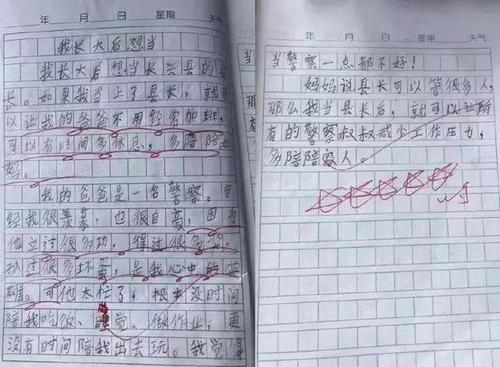 年 月 日 星期 天气
我长大后想当
我长大后想当长兴县的
长。如果我当上了县长，就可
以让我的爸爸不用经常加班，
可以有时间多休息，多陪陪
妈。
我的爸爸是一名警察。曾
经我很羡慕，也很自豪，因为
他立过很多功，得过很多
抓过很多坏蛋，是我心中的英
雄。可他太忙了，根本没时间
陪我吃饭、睡觉、做作业，更
没有时间陪我出去玩。我觉得
年 月 日 星期 天气
当警察一点都不好！
妈妈说县长可以管很多人，
那么我当县长后，就可以让所
有的警察叔叔减少工作压力，
多陪陪家人。